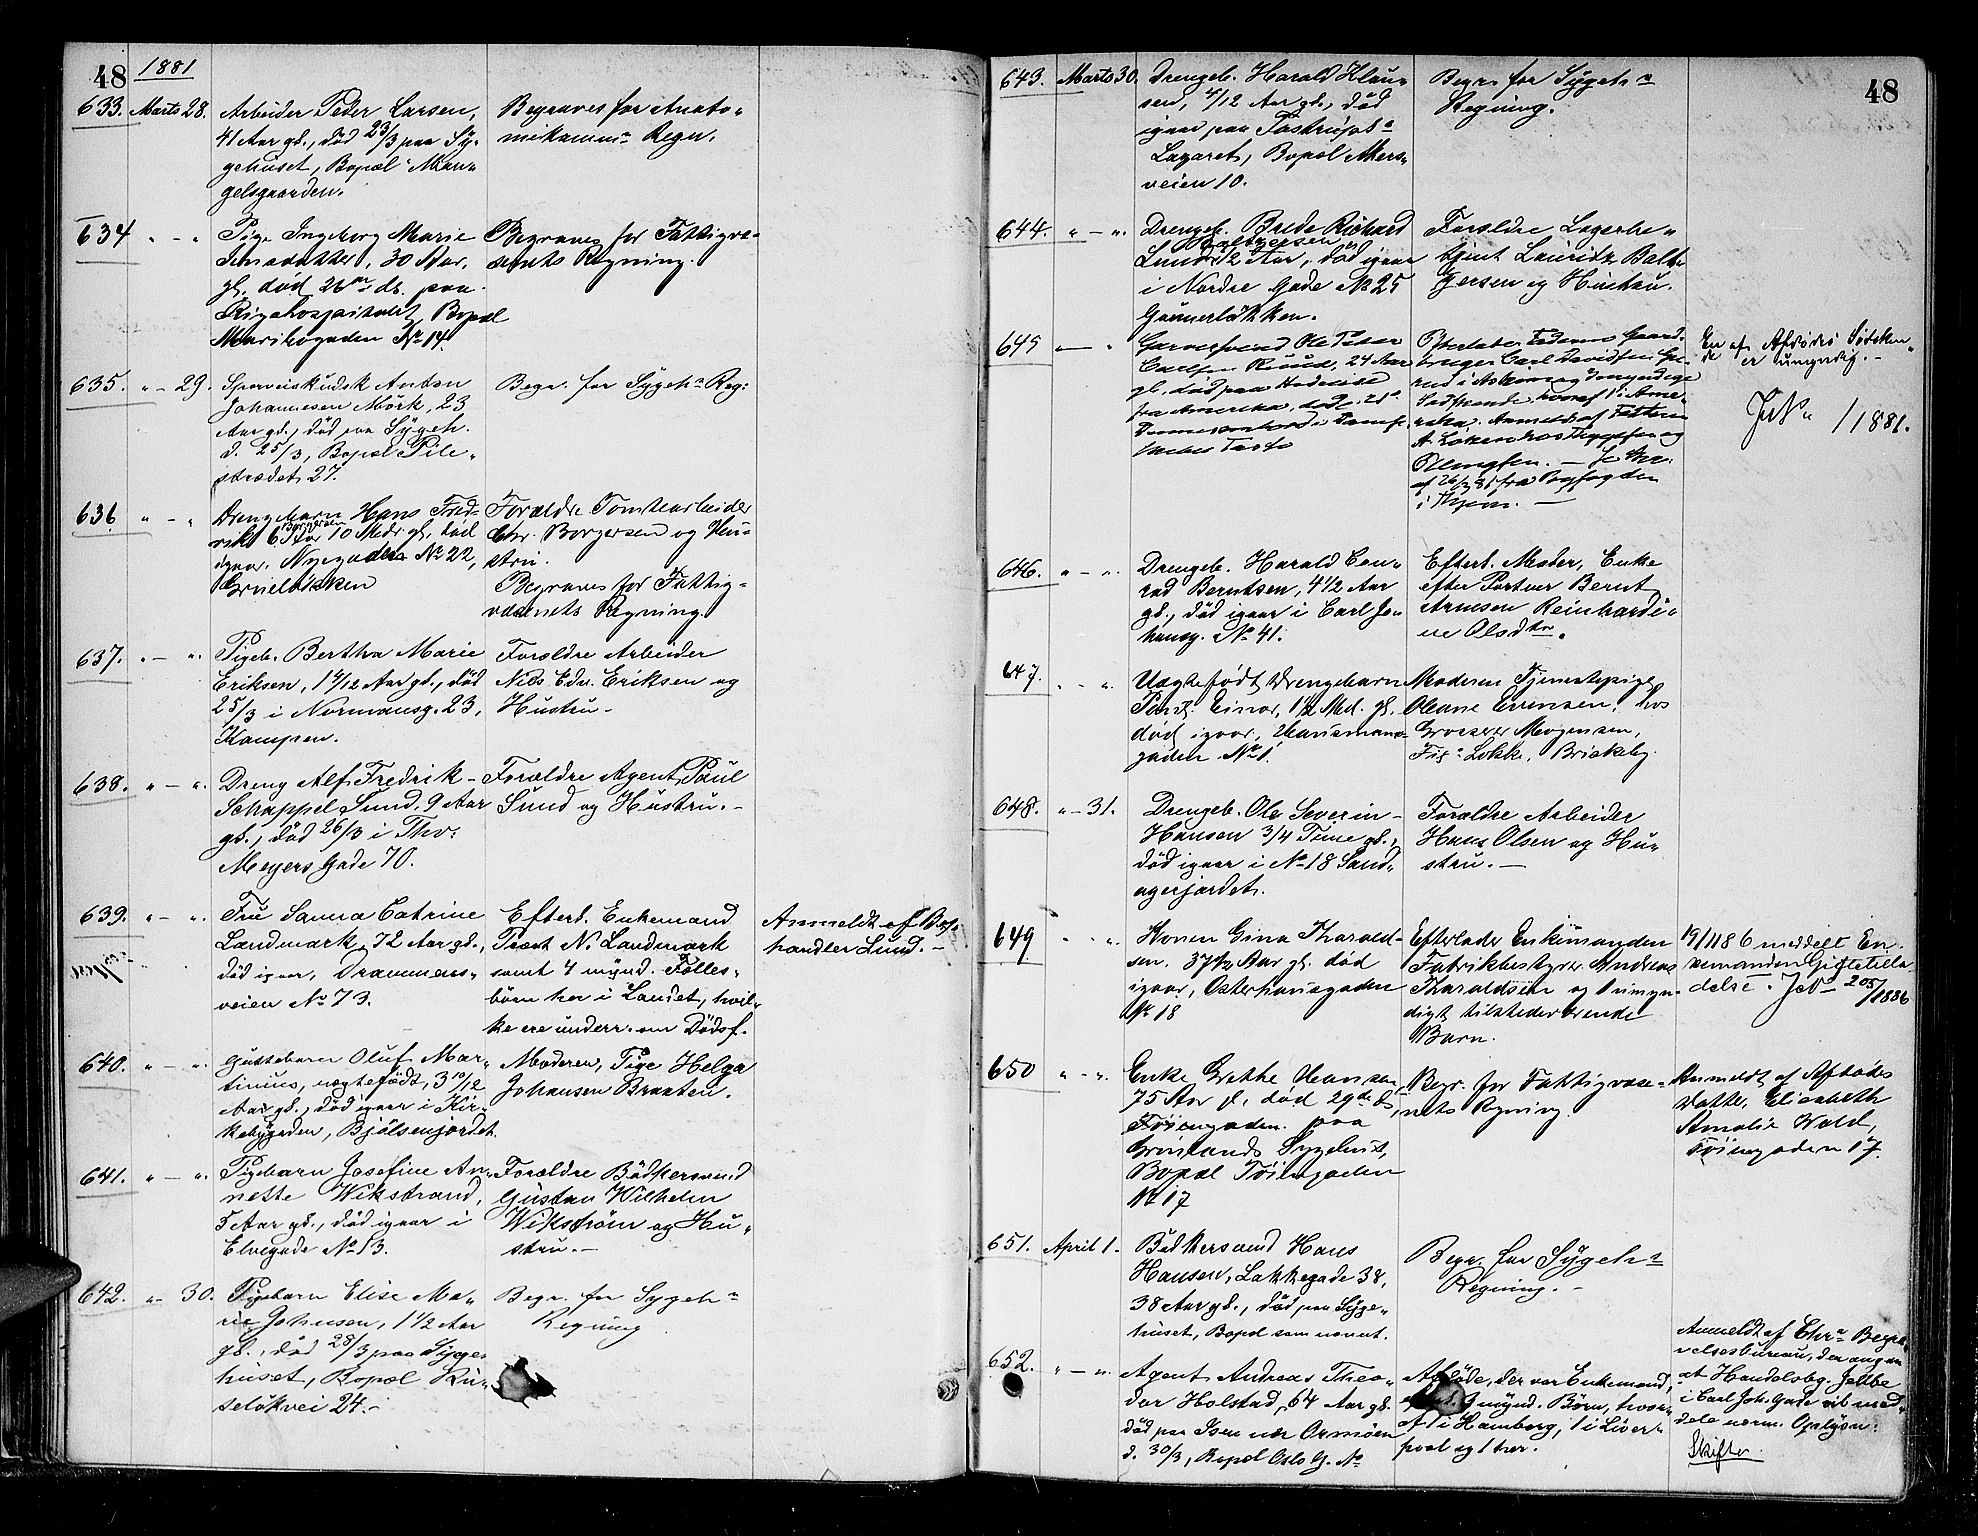 48
1881
633. Marts 28. Arbeider Peder Larsen,
41 Aar gl., død 23/3 paa Sy-
gehuset, Bopæl Man-
gelsgaarden.
Begraves for Anato-
mekamm. Regn.
634 " - " Pige Ingeborg Marie
30 Aar.
gl. død 26de ds. paa
Rigshospitalet, Bopæl
Maribogaden No 14.
Begraves for Fattigvæ-
senets Regning.
635. " - 29. Sporveiskudsk Anton
Johannesen Mörk, 23
Aar gl., død paa Sygeh.
d. 25/3, Bopæl Pile-
strædet 27.
Begr. for Sygeh. Reg:
636 " - " Drengebarn Hans Fred-
Borgersen
rik 6 Aar 10 Mdr. gl., død
igaar. Nyegaden No 22,
Grünerløkken
Forældre Tomtearbeider
Chr. Borgersen og Hu-
stru.
Begraves for Fattig-
væsenets Regning.
637. " - " Pigeb. Bertha Marie
Eriksen, 1 4/12 Aar gl., død
25/3 i Normansg. 23,
Kampen.
Forældre Arbeider
Nils Edv. Eriksen og
Hustru.
638. " - " Dreng Alf Fredrik
Schappel Sund, 9 Aar
gl., død 26/3 i Thv.
Meyers Gade 70.
Forældre Agent Paul
Sund og Hustru.
639. " - " Fru Sanna Catrine
Landmark, 72 Aar gl.,
død igaar, Drammens-
veien No 73.
Efterl. Enkemand
Provst N. Landmark
samt 4 mynd. Fælles-
børn her i Landet, hvil-
ke ere underr. om Dødsf.
Anmeldt af Bog-
handler Lund.
640. " - " Guttebarn Oluf Mar-
tinius, uægtefødt, 3 10/12
Aar gl., død igaar i Kir-
kebygaden, Bjølsenjordet.
Moderen, Pige Helga
Johansen Braaten.
641. " - " Pigebarn Josefine An-
nette Wikstrand,
5 Aar gl., død igaar i
Elvegade No 13.
Forældre Bødkersvend
Gustav Wilhelm
Wikstrøm og Hu-
stru.
642. " - 30. Pigebarn Elise Ma-
rie Johnsen, 1 1/2 Aar
gl., død 28/3 paa Syge-
huset, Bopæl Ru-
seløkvei 24.
Begr. for Sygeh.
Regning
48
643. Marts 30. Drengeb. Harald Klau-
sen, 4/12 Aar gl., død
igaar paa Tostrups
Lazaret, Bopæl Akers-
veien 10.
Begr. for Sygeh.
Regning.
644. " - " Drengeb. Brede Richard
Baltzersen
Lund 1/2 Aar, død igaar
i Nordre Gade No 25
Grünerløkken.
Forældre Lagerbe-
tjent Lauritz Balt-
zersen og Hustru.
645 " - " Garversvend Ole Peter
Carlsen Ruud, 24 Aar
gl., død paa Udreise
fra Amerika
Efterlader Faderen Gaard-
bruger Carl Davidsen
i Askim og 3 umyndige
Sødskende hvoraf 1 i Ame-
rika.
En af Afdødes Sødsken-
de er umyndig.
JNo /1881.
646. " - " Drengeb. Harald Con-
rad Berntsen, 4 1/2 Aar
gl., død igaar i Carl Jo-
hansg. No 41.
Efterl. Moder, Enke
efter Portner Bernt
Arnesen Reinhardi-
ne Olsdtr.
647. " - " Uægtefødt Drengebarn
Paul Einar, 1 1/2 Md. gl.
død igaar, Hausmans-
gaden No 1.
Moderen Tjenestepige
Oleane Evensen, hos
Grosserer Mogensen,
Løkke, Briskeby.
648. " - 31. Drengeb. Ole Severin
Hansen 3/4 Time gl.,
død igaar i No 18 Sand-
agerjordet.
Forældre Arbeider
Hans Olsen og Hu-
stru.
649 " " Konen Gina Tharald-
sen. 37 1/2 Aar gl. død
igaar, Osterhausgaden
No 18
Efterlader Enkemanden
Fabrikbestyrer Andreas
Tharaldsen og 1 umyn-
digt tilstedeværende
Barn.
19/1 1886 meddelt En-
kemanden Giftetilla-
delse. JNo 205/1886
650 " - " Enke Grethe Hansen
75 Aar gl. død 29de ds,
Tøiengaden. paa
Grønlands Sygehus,
Bopæl Tøiengaden
No 17
Begr. for Fattigvæse-
nets Regning.
Anmeldt af Afdødes
Datter, Elisabeth
Amalie Wold,
Tøiengaden 17.
651. April 1. Bødkersvend Hans
Hansen, Lakkegade 38,
38 Aar gl., død paa Syge-
huset, Bopæl som nævnt.
Begr. for Sygeh.
Regning.
652. " - " Agent Andreas Theo-
dor Holstad, 64 Aar gl.
død paa Isen nær Ormøen
d. 30/3, Bopæl Oslo G. No
Afdøde, der var Enkemand,
3 mynd. Børn, hvor-
af 1 i Hamborg, 1 i Liver-
pool og 1 her.
Anmeldt af Chr. Begra-
velsesbureau, der angav
at Handelsbg. Jelbe
i Carl Joh. Gade vil med-
dele nærm. Oplysn:
Skifter